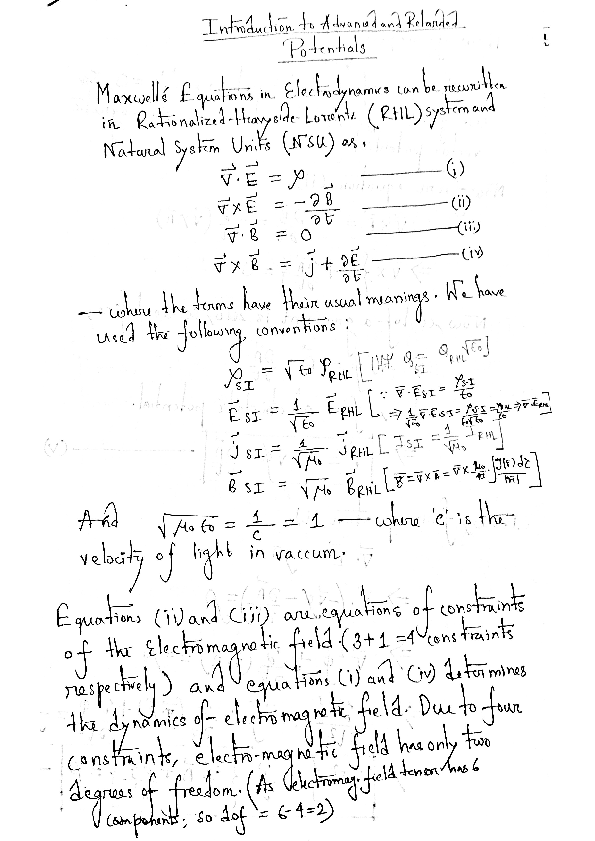 Introduction to Advanced and Retarded
Potentials
1
Maxwell's Equations in Electrodynamics can be rewritten
in Rationalized-Heavyside-Lorentz (RHL) system and
Natural System Units (NSU) as,
∇⃗·E⃗ = ρ ——— (i)
∇⃗×E⃗ = -∂B⃗/∂t ——— (ii)
∇⃗·B⃗ = 0 ——— (iii)
∇⃗×B⃗ = j⃗ + ∂E⃗/∂t ——— (iv)
— where the terms have their usual meanings. We have
used the following conventions:
ρ_SI = √ε₀ ρ_RHL [ Q_SI = Q_RHL √ε₀]
E⃗_SI = 1/√ε₀ E⃗_RHL [∵ ∇⃗·E⃗_SI = ρ_SI/ε₀
j⃗_SI = 1/√μ₀ j⃗_RHL [J_SI = 1/√μ₀ J_RHL]
B⃗_SI = √μ₀ B⃗_RHL
And √μ₀ε₀ = 1/c = 1 — where 'c' is the
velocity of light in vaccum.
Equations (ii) and (iii) are equations of constraints
of the Electromagnetic field (3+1 = 4 constraints
respectively) and equations (i) and (iv) determines
the dynamics of electromagnetic field. Due to four
constraints, electro-magnetic field has only two
degrees of freedom. (As electromag. field tensor has 6
components, so dof = 6-4=2)